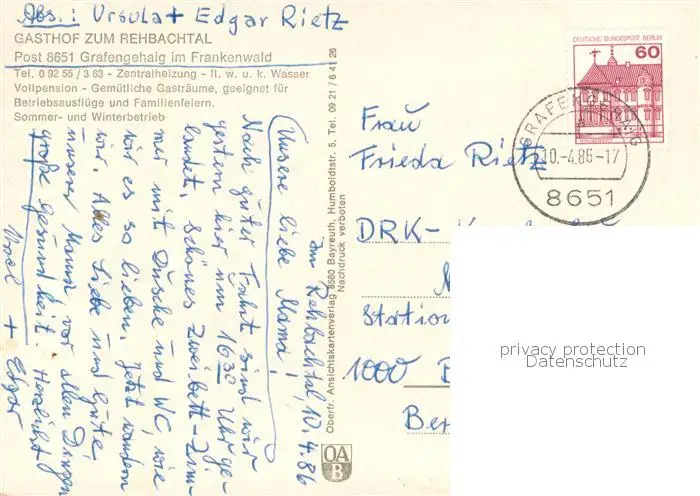 Abs.: Ursula + Edgar Rietz
GASTHOF ZUM REHBACHTAL
Post 8651 Grafengehaig im Frankenwald
Tel. 0 92 55 / 3 63 - Zentralheizung - fl. w. u. k. Wasser
Vollpension - Gemütliche Gasträume, geeignet für
Betriebsausflüge und Familienfeiern.
Sommer- und Winterbetrieb
Zum Rehbachtal, 10.4.86
Unsere liebe Mama!
Nach guter Fahrt sind wir
gestern hier um 16³⁰ Uhr ge-
landet. Schönes Zweibett-Zim-
mer mit Dusche und WC, wie
wir es so lieben. Jetzt wandern
wir. Alles Liebe und Gute
unserer Mama, vor allen Dingen
große Gesundheit. Herzlichst
+ Edgar
Oberfr. Ansichtskartenverlag 8580 Bayreuth, Humboldtstr. 5, Tel. 09 21 / 6 41 26
Nachdruck verboten
OA
B
DEUTSCHE BUNDESPOST BERLIN
60
GRAFENGEHAIG
10.-4.86-17
8651
Frau
Frieda Rietz
DRK-
Station
1000 B
Ber
privacy protection
Datenschutz